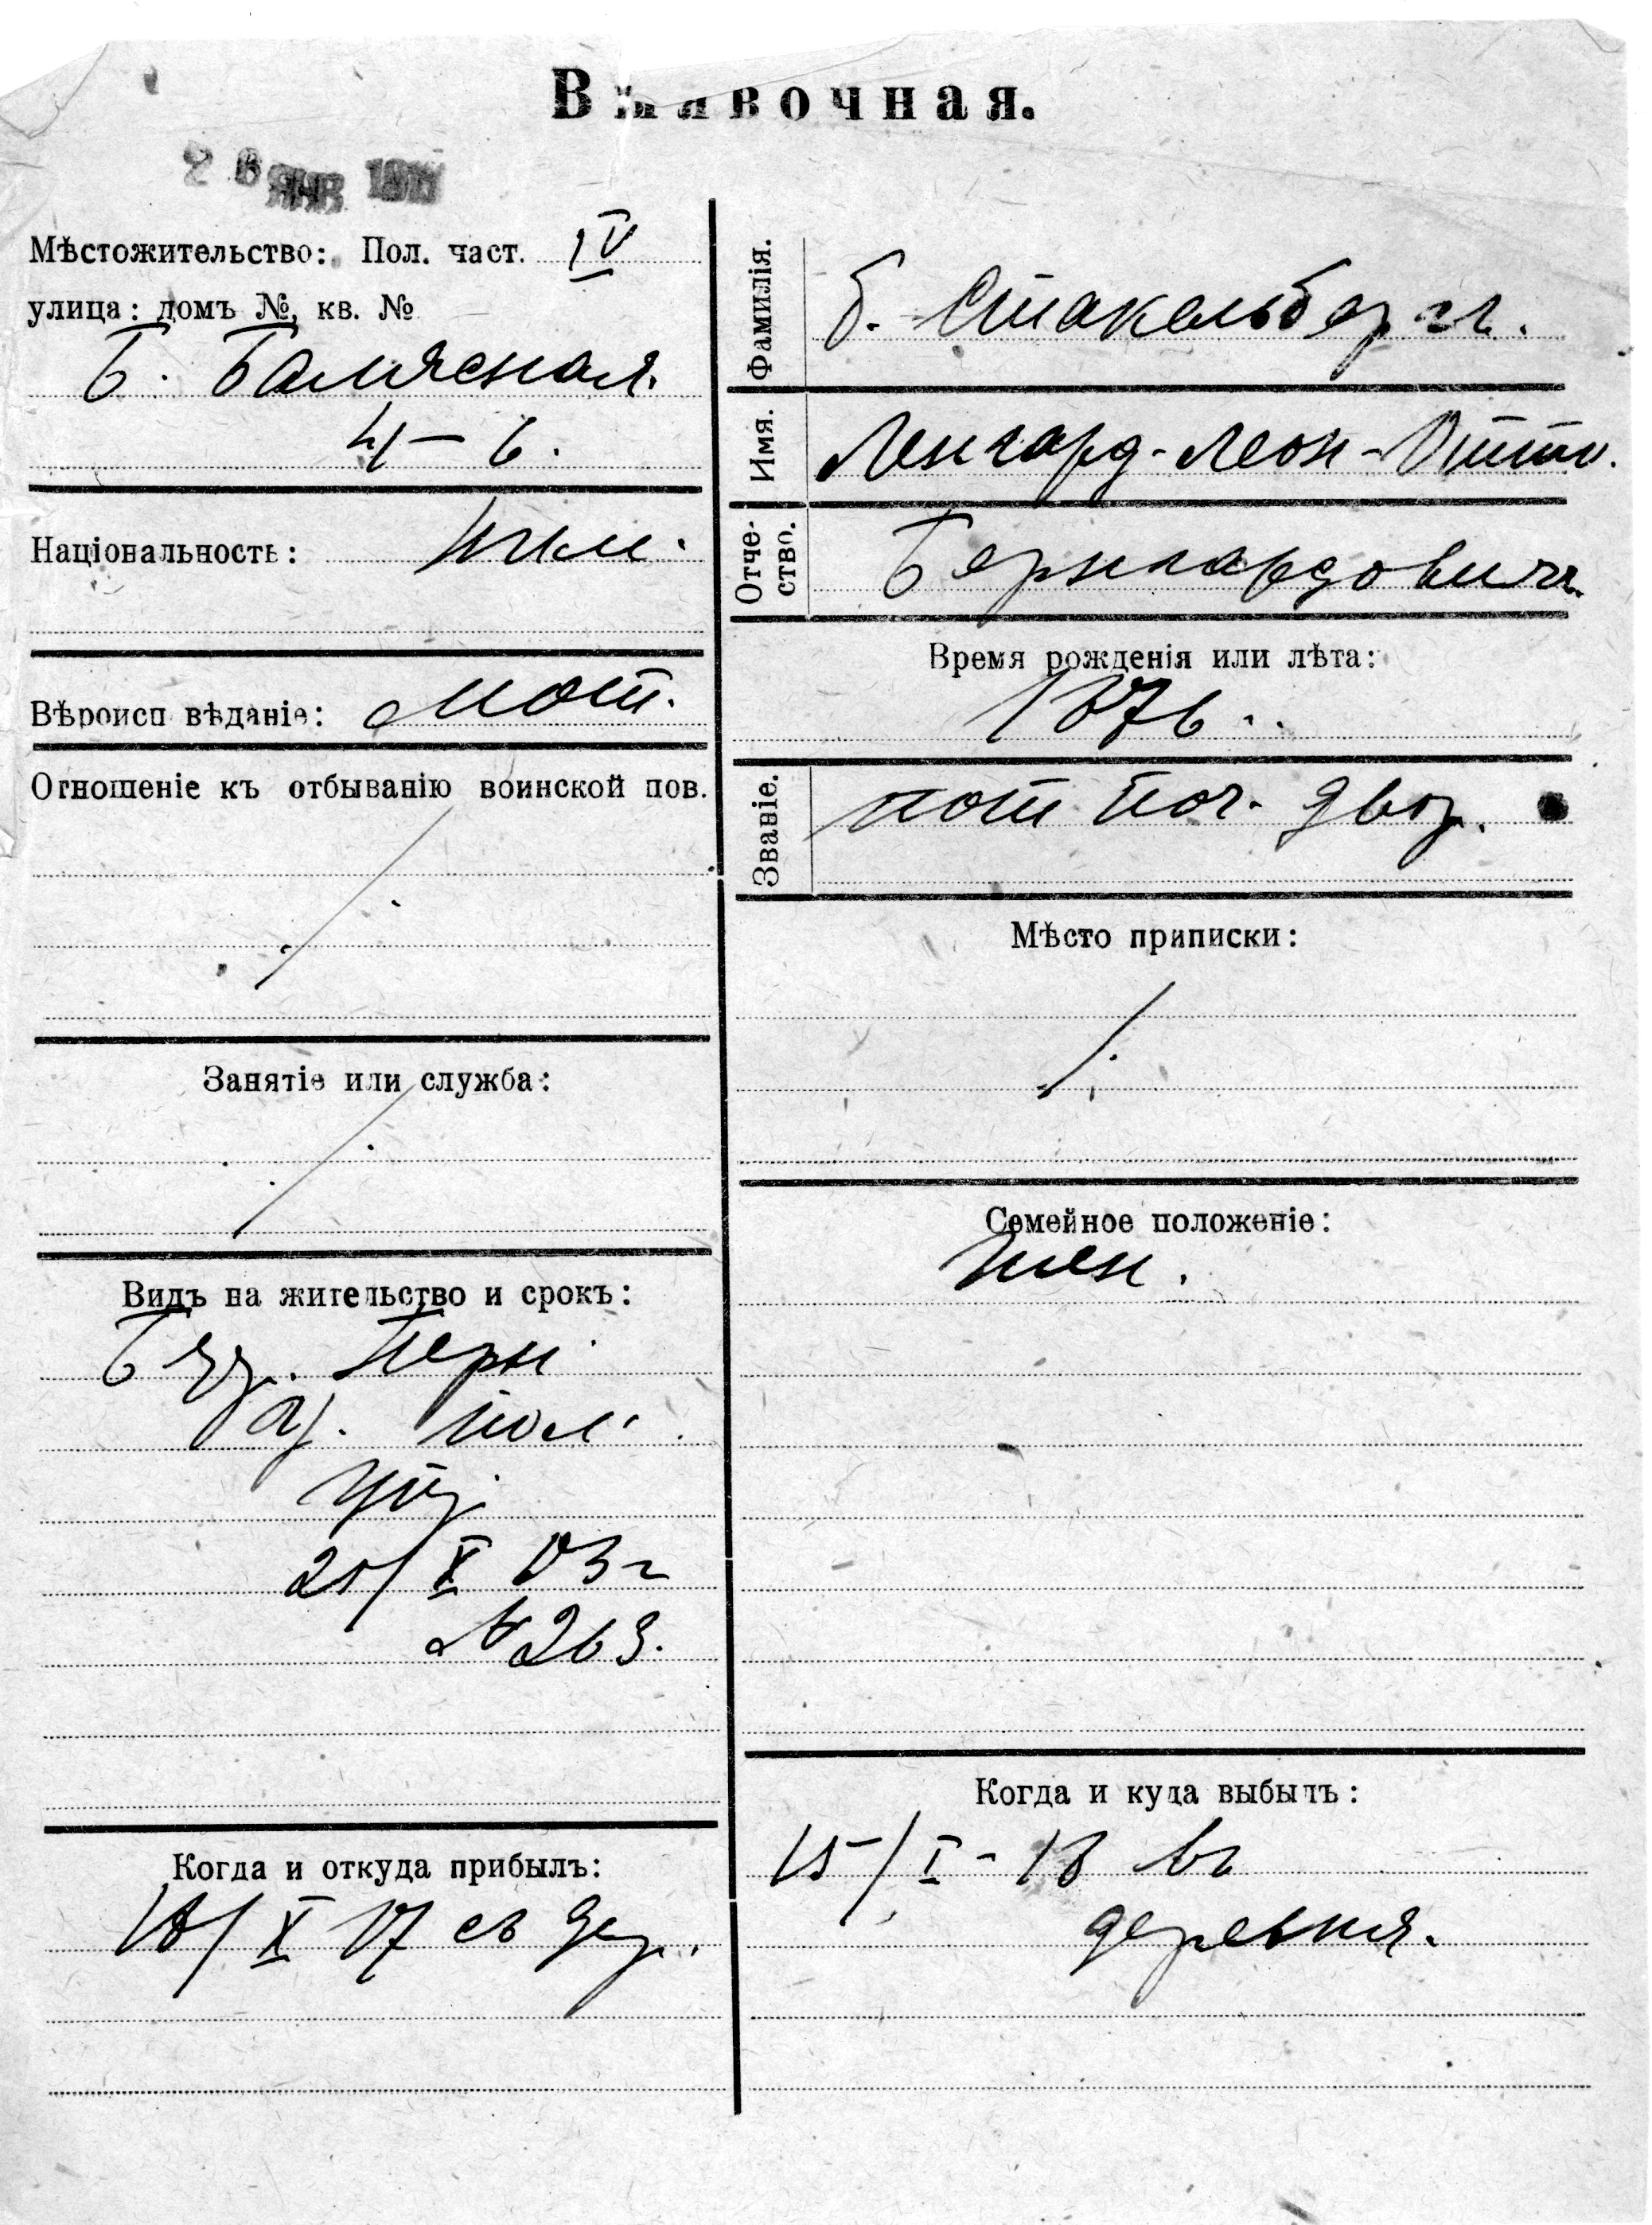 В явочная.
26 ЯНВ
Мѣстожительство: Пол. част. IV
улица: домъ №, кв. №
Б.
4 – 6.
Національность:
Вѣроисповѣданіе: лют.
Отношеніе къ отбыванію воинской пов.
Занятіе или служба:
Видъ на жительство и срокъ:
Перн
пол
X 03 г
№ 263.
Когда и откуда прибылъ:
18/X 17 съ дер.
Фамилія. б. Стакельбергъ.
Имя. Ленгард-Леон-Отто.
Отчество. Бернгардовичъ.
Время рожденія или лѣта:
1876.
Званіе. пот. поч. двор.
Мѣсто приписки:
Семейное положеніе:
жен.
Когда и куда выбылъ:
15/I - 18 въ
деревня.